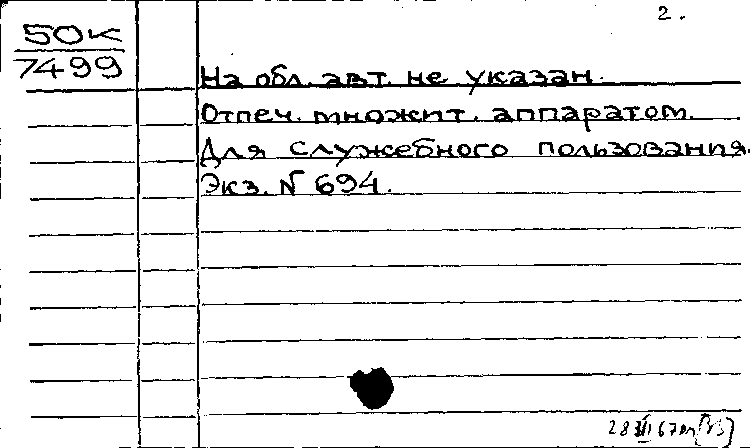 2.
50к
7499
На обл. авт. не указан.
Отпеч. множит. аппаратом.
Для служебного пользования.
Экз. N 694.
28 VII 67